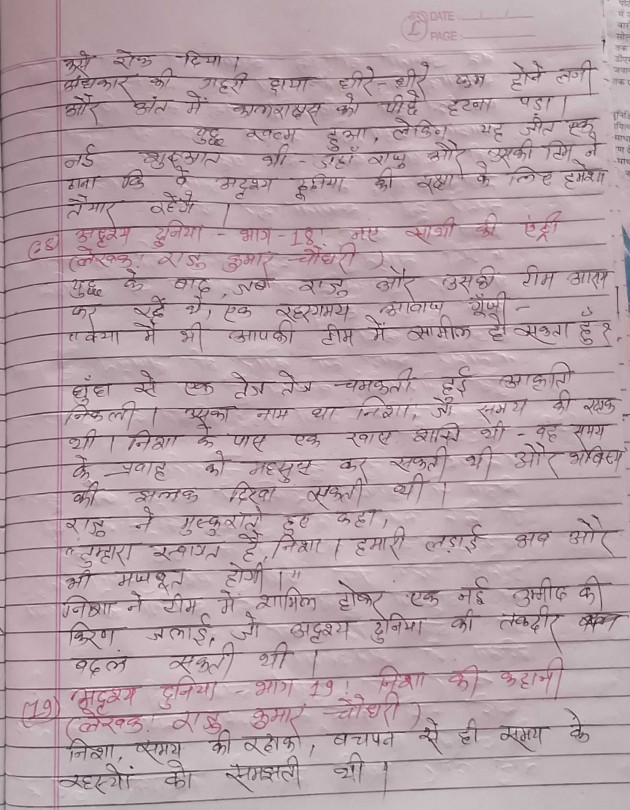 DATE
PAGE
उसे रोक दिया।
अंधकार की गहरी छाया धीरे-धीरे कम होने लगी
और अंत में कालराक्षस को पीछे हटना पड़ा।
युद्ध खत्म हुआ, लेकिन यह जीत एक
नई शुरुआत थी - जहाँ राजु और उसकी टिम ने
ठाना कि वे अदृश्य दुनिया की रक्षा के लिए हमेशा
तैयार रहेंगे।
(18) अदृश्य दुनिया - भाग -18: नए साथी की एंट्री
(लेखक: राजु कुमार चौधरी)
युद्ध के बाद, जब राजु और उसकी टीम आराम
कर रहे थे, एक रहस्यमय आवाज गूँजी -
"क्या मैं भी आपकी टीम में सामील हो सकता हुँ?
धुंध से एक तेज तेज चमकती हुई आकृति
निकली। उसका नाम था निशा, जो समय की रक्षक
थी। निशा के पास एक खास शक्ति थी - वह समय
के प्रवाह को महसुस कर सकती थी और भविष्य
की झलक दिखा सकती थी।
राजु ने मुस्कुराते हुए कहा,
"तुम्हारा स्वागत है, निशा। हमारी लड़ाई अब और
भी मजबूत होगी।"
निशा ने टीम में शामिल होकर एक नई उम्मीद की
किरण जलाई, जो अदृश्य दुनिया की तकदीर
बदल सकती थी।
(19) अदृश्य दुनिया - भाग 19: निशा की कहानी
(लेखक: राजु कुमार चौधरी)
निशा, समय की रक्षक, बचपन से ही समय के
रहस्यों को समझती थी।